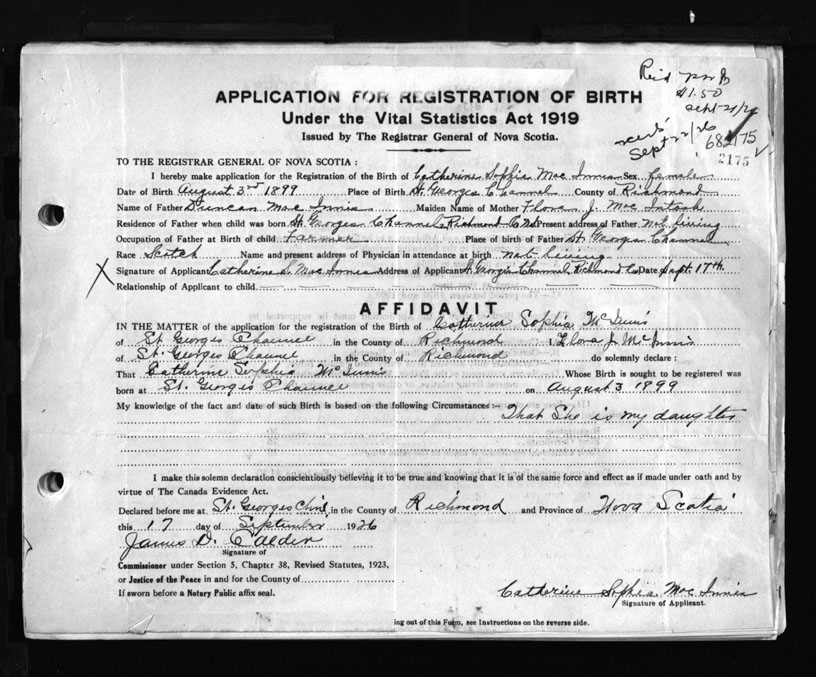 Rec'd
$1.50
Sept 21/26
Sept 22/26
682175
2175
APPLICATION FOR REGISTRATION OF BIRTH
Under the Vital Statistics Act 1919
Issued by The Registrar General of Nova Scotia.
TO THE REGISTRAR GENERAL OF NOVA SCOTIA :
I hereby make application for the Registration of the Birth of Catherine Sophia Mac Innis Sex female
Date of Birth August 3rd 1899 Place of Birth St Georges Channel County of Richmond
Name of Father Duncan Mac Innis Maiden Name of Mother Flora J. Mac Intosh
Residence of Father when child was born St Georges Channel Richmond Co NS Present address of Father not living
Occupation of Father at Birth of child Farmer Place of birth of Father St Georges Channel
Race Scotch Name and present address of Physician in attendance at birth not living
X Signature of Applicant Catherine S. Mac Innis Address of Applicant St Georges Channel Richmond Co Date Sept. 17th.
Relationship of Applicant to child
AFFIDAVIT
IN THE MATTER of the application for the registration of the Birth of Catherine Sophia McInnis
of St. Georges Channel in the County of Richmond I, Flora J. McInnis
of St. Georges Channel in the County of Richmond do solemnly declare :
That Catherine Sophia McInnis Whose Birth is sought to be registered was
born at St. Georges Channel on August 3 1899
My knowledge of the fact and date of such Birth is based on the following Circumstances:— That She is my daughter
I make this solemn declaration conscientiously believing it to be true and knowing that it is of the same force and effect as if made under oath and by
virtue of The Canada Evidence Act.
Declared before me at St. Georges Chnl in the County of Richmond and Province of Nova Scotia
this 17 day of September 1926
James D. Calder
Signature of
Commissioner under Section 5, Chapter 38, Revised Statutes, 1923,
or Justice of the Peace in and for the County of
If sworn before a Notary Public affix seal.
Catherine Sophia Mac Innis
Signature of Applicant.
ing out of this Form, see Instructions on the reverse side.